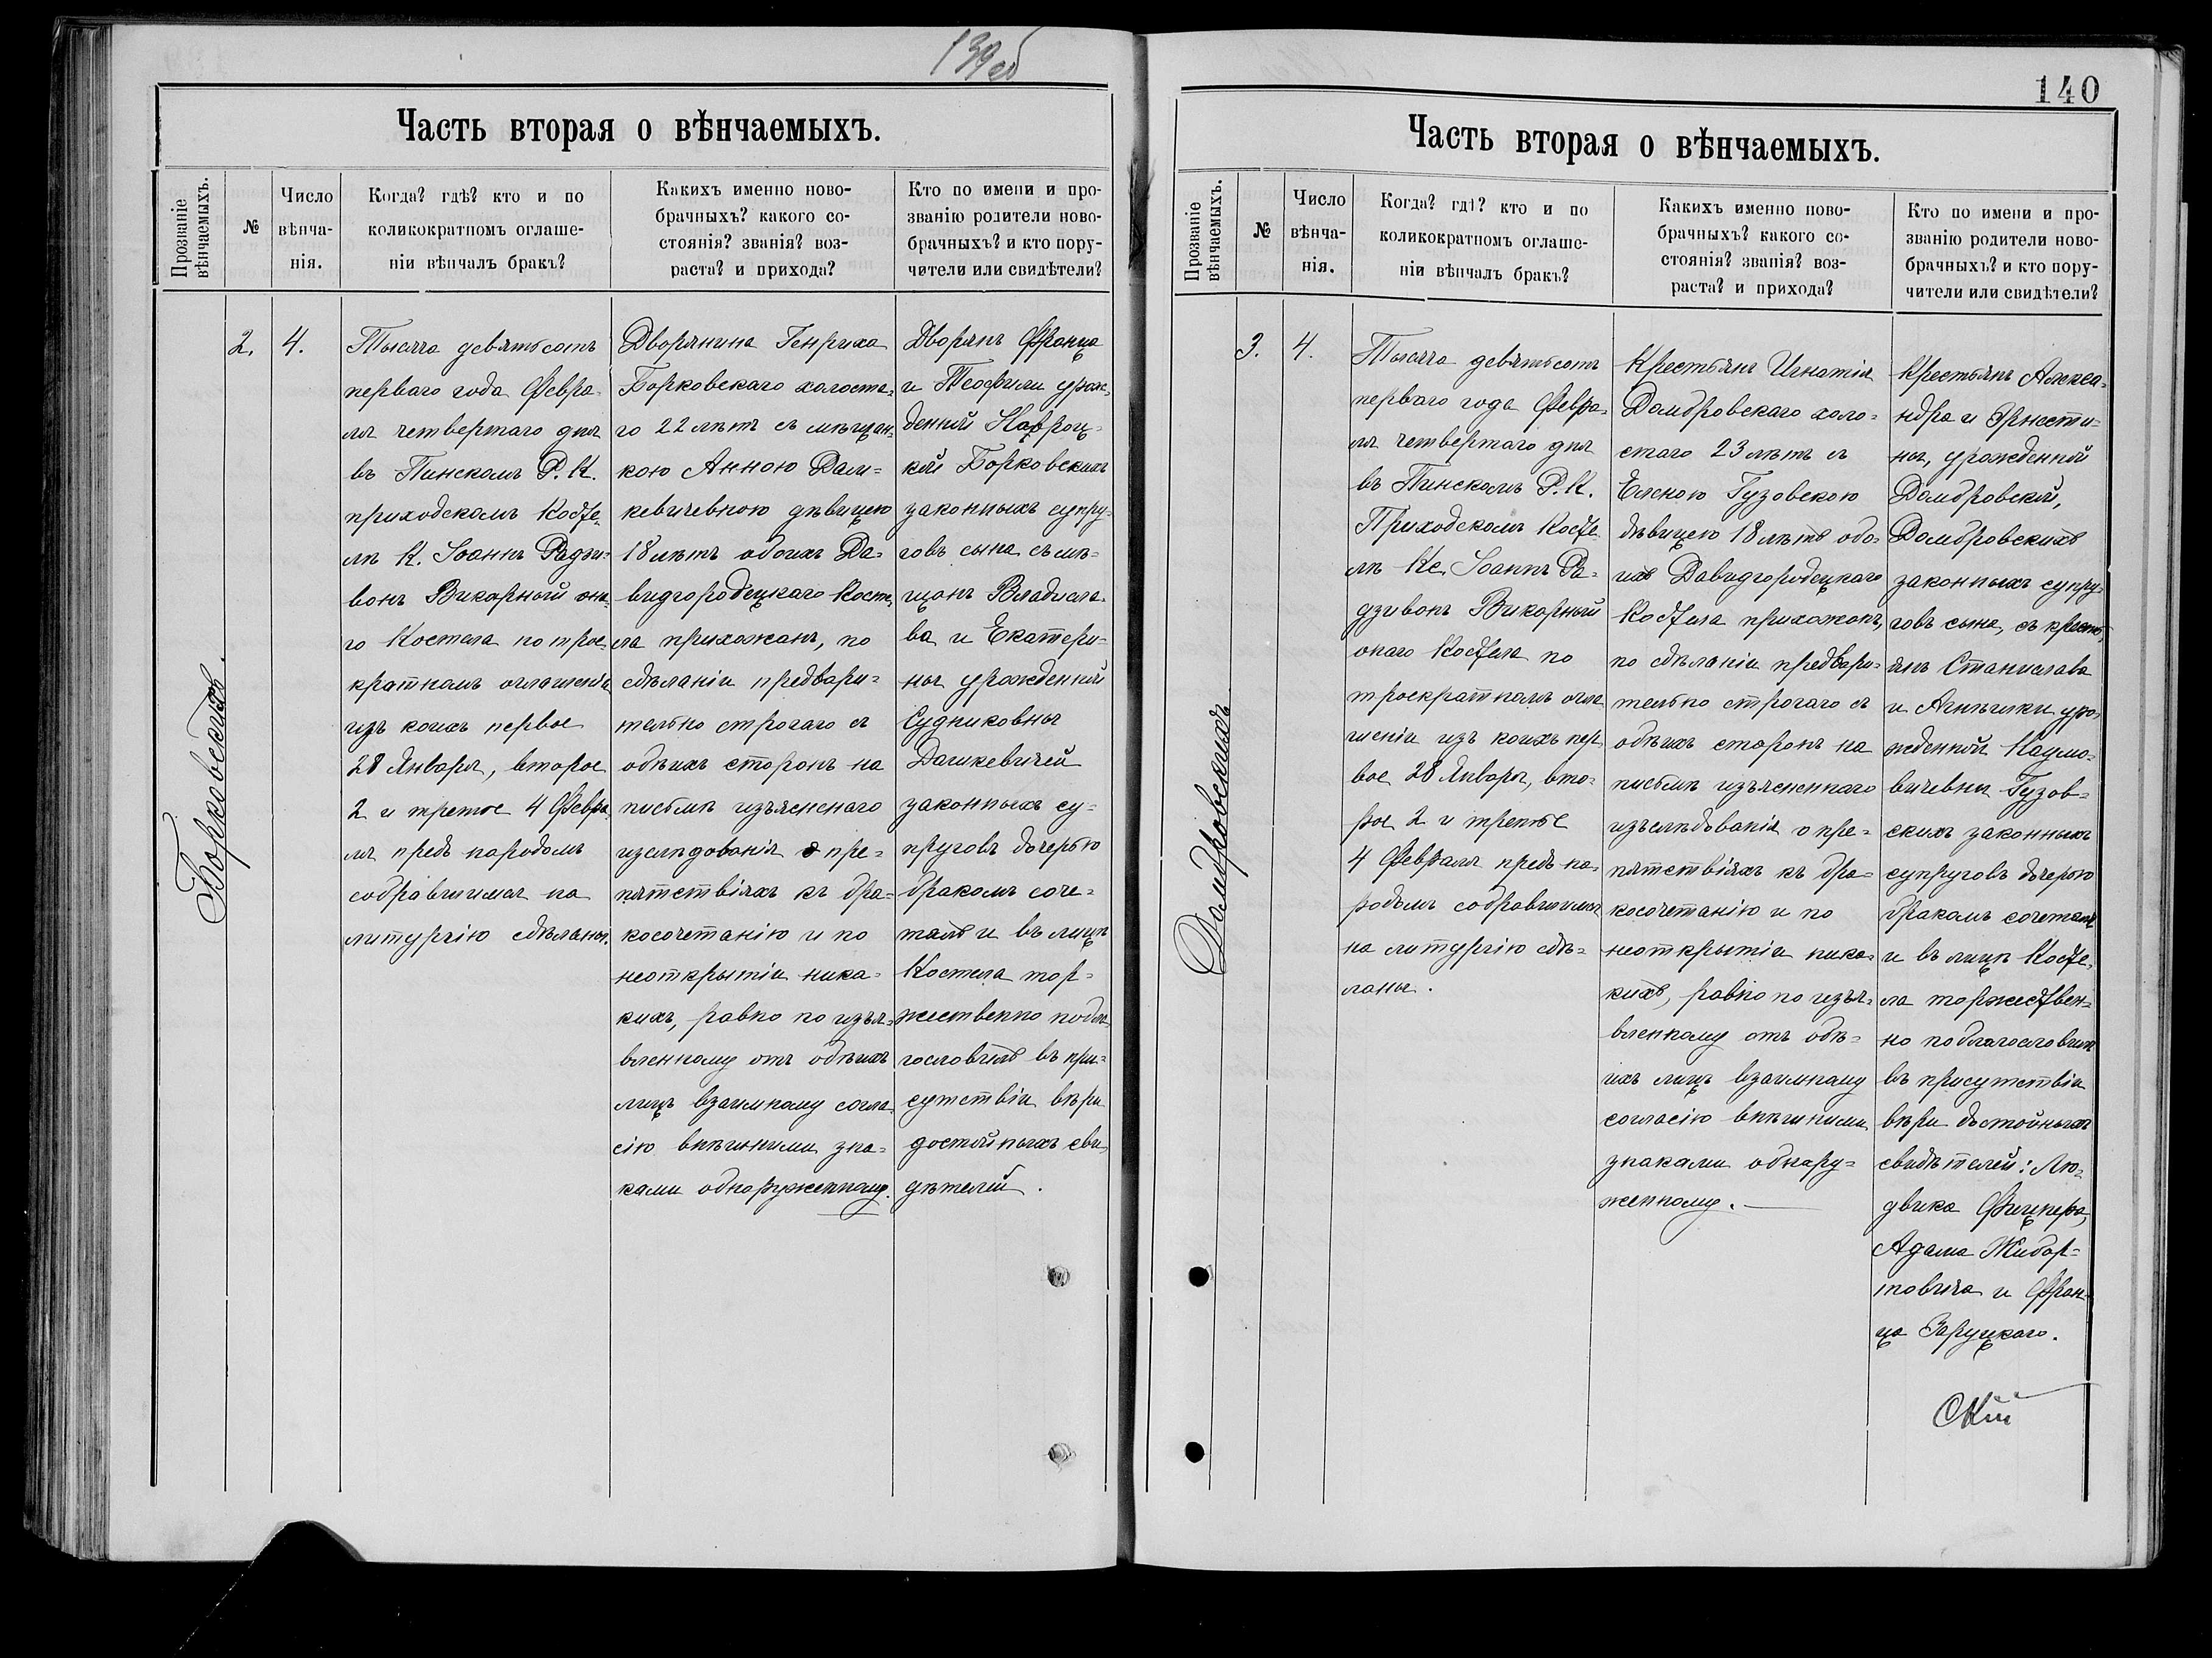 139об
Часть вторая о вѣнчаемыхъ.
Прозваніе вѣнчаемыхъ.
№
Число вѣнча-нія.
Когда? гдѣ? кто и по
коликократномъ оглаше-
ніи вѣнчалъ бракъ?
Какихъ именно ново-
брачныхъ? какого со-
стоянія? званія? воз-
раста? и прихода?
Кто по имени и про-
званію родители ново-
брачныхъ? и кто пору-
чители или свидѣтели?
Борковскихъ.
2.
4.
Тысяча девятьсотъ
перваго года Февра-
ля четвертаго дня
въ Пинскомъ Р. К.
приходскомъ Косте-
лѣ К. Іоаннъ Радзи-
вонъ Викарный она-
го Костела по трое-
кратномъ оглашеніи
изъ коихъ первое
28 Января, второе
2 и третье 4 Февра-
ля предъ народомъ
собравшимся на
литургію сдѣланы.
Дворянина Генриха
Борковскаго холоста-
го 22 лѣтъ съ мѣщан-
кою Анною Даш=
кевичевною дѣвицею
18 лѣтъ обоихъ Да-
видгородецкаго Косте-
ла прихожанъ, по
сдѣланіи предвари=
тельно строгаго съ
обѣихъ сторонъ на
письмѣ изъясненаго
изслѣдованія о пре=
пятствіяхъ къ бра=
косочетанію и по
неоткрытіи ника=
кихъ, равно по изъя=
вленному отъ обѣихъ
лицъ взаимному согла
сію внѣшними зна=
ками обнаруженному.
Дворянъ Франца
и Теофили урож-
денной
кой Борковскихъ
законныхъ супру-
говъ сына, съ мѣ-
щанъ Владисла-
ва и Екатери-
ны урожденной
Судниковны
Дашкевичей
законныхъ су=
пруговъ дочерью
бракомъ соче=
талъ и въ лицѣ
Костела тор=
жественно побла-
гословилъ въ при=
сутствіи вѣри
достойныхъ сви
дѣтелей.
140
Часть вторая о вѣнчаемыхъ.
Прозваніе вѣнчаемыхъ.
№
Число вѣнча-нія.
Когда? гдѣ? кто и по
коликократномъ оглаше-
ніи вѣнчалъ бракъ?
Какихъ именно ново-
брачныхъ? какого со-
стоянія? званія? воз-
раста? и прихода?
Кто по имени и про-
званію родители ново-
брачныхъ? и кто пору-
чители или свидѣтели?
Домбровскихъ
3.
4.
Тысяча девятьсотъ
перваго года Февра-
ля четвертаго дня
въ Пинскомъ Р. К.
Приходскомъ Косте
лѣ Кс. Іоаннъ Ра-
дзивонъ Викарный
онаго Костела по
троекратномъ огла
шеніи изъ коихъ пер
вое 28 Января, вто-
рое 2 и третье
4 Февраля предъ на-
родомъ собравшимся
на литургію сдѣ=
ланы.
Крестьянъ Игнатія
Домбровскаго холо-
стаго 23 лѣтъ съ
Еленою Гузовскою
дѣвицею 18 лѣтъ обо-
ихъ Давидгородецкаго
Костела прихожанъ,
по сдѣланіи предвари-
тельно строгаго съ
обѣихъ сторонъ на
письмѣ изъясненнаго
изъслѣдованія о пре=
пятствіяхъ къ бра=
косочетанію и по
неоткрытіи ника-
кихъ, равно по изъя-
вленному отъ обѣ=
ихъ лицъ взаимному
согласію внѣшними
знаками обнару=
женному.
Крестьянъ Алекса-
ндра и Эрнести=
ны, урожденной
Домбровской,
Домбровскихъ
законныхъ супру-
говъ сына, съ кресть-
янъ Станислава
и уро-
жденной Наумо-
вичевны Гузов=
скихъ законныхъ
супруговъ дочерью
бракомъ сочеталъ
и въ лицѣ Косте-
ла торжествен-
но поблагословилъ
въ присутствіи
вѣри достойныхъ
свидѣтелей: Лю-
двика Фишнера,
Адама Жибор=
товича и Фран-
ца Заруцкаго.